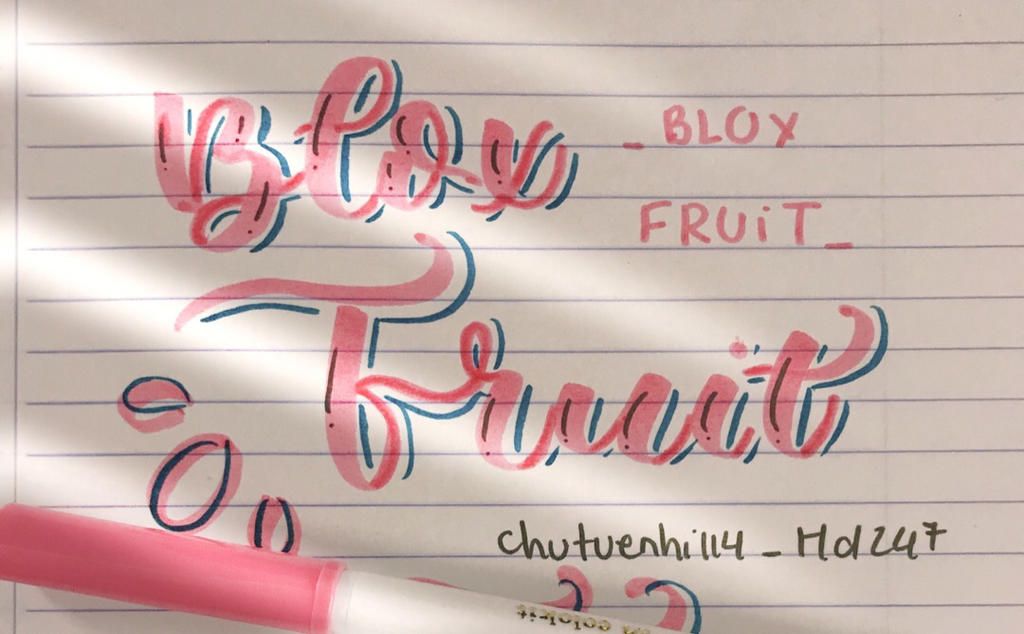 Blox
_ BLOX
FRUiT_
Fruit
chutuenhi114 _ Hd247
colokit